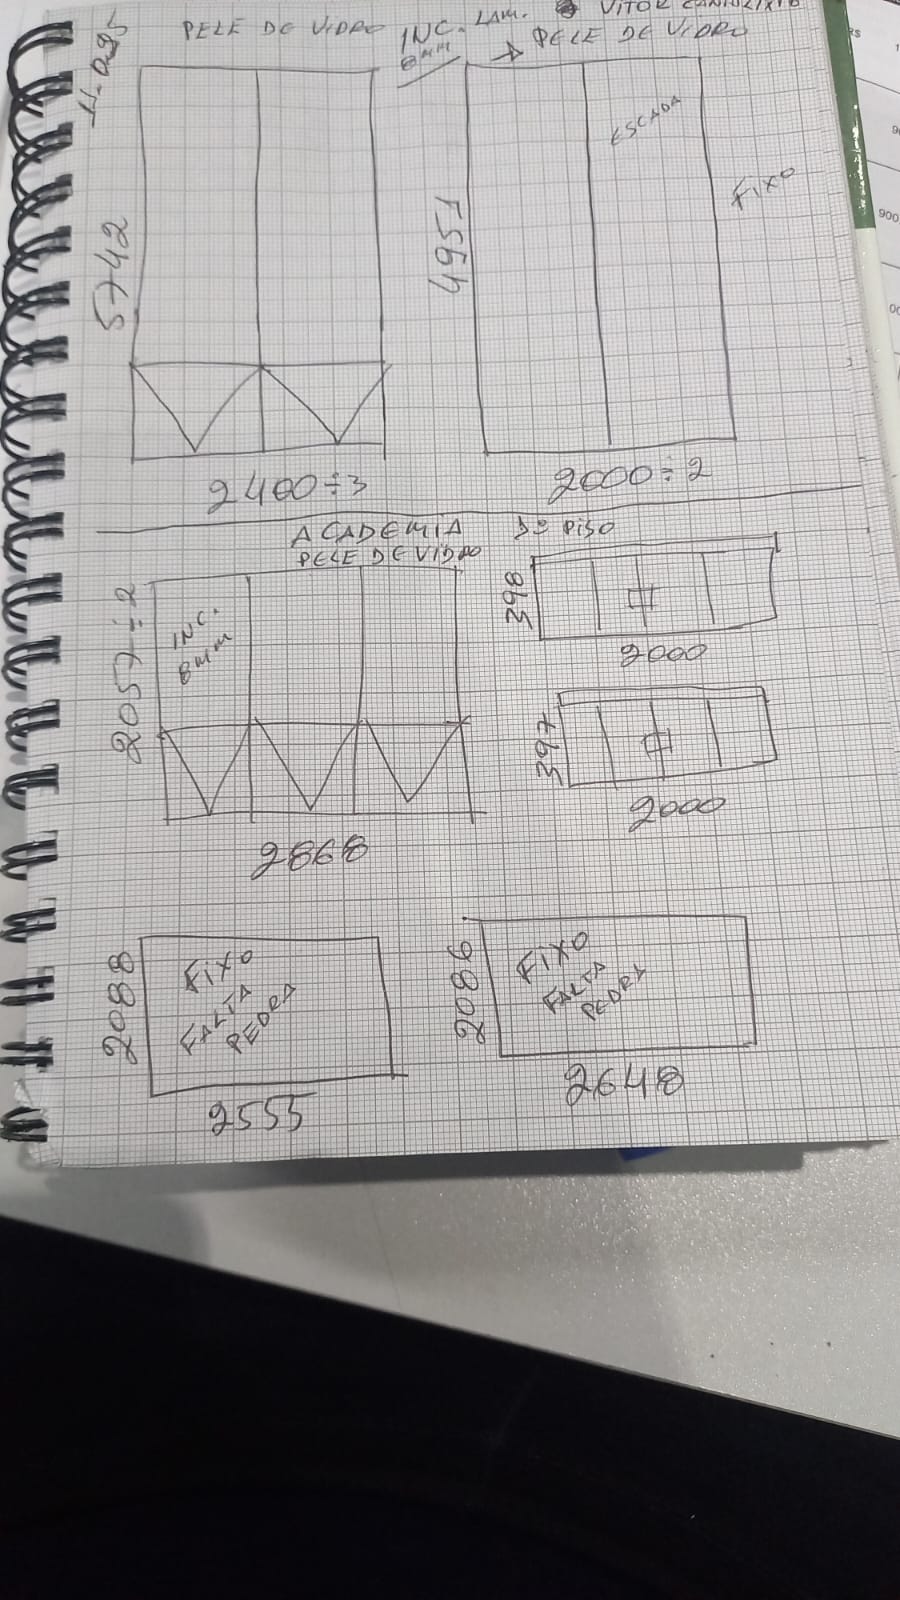 PELE DE VIDRO
INC. LAM.
8mm
VITOR
PELE DE VIDRO
5742
2400÷3
ESCADA
FIXO
2000÷2
ACADEMIA
PELE DE VIDRO
INC.
8mm
2057÷2
2868
PISO
398
2000
397
2000
2088
FIXO
FALTA
PEDRA
2555
2086
FIXO
FALTA
PEDRA
2648
900